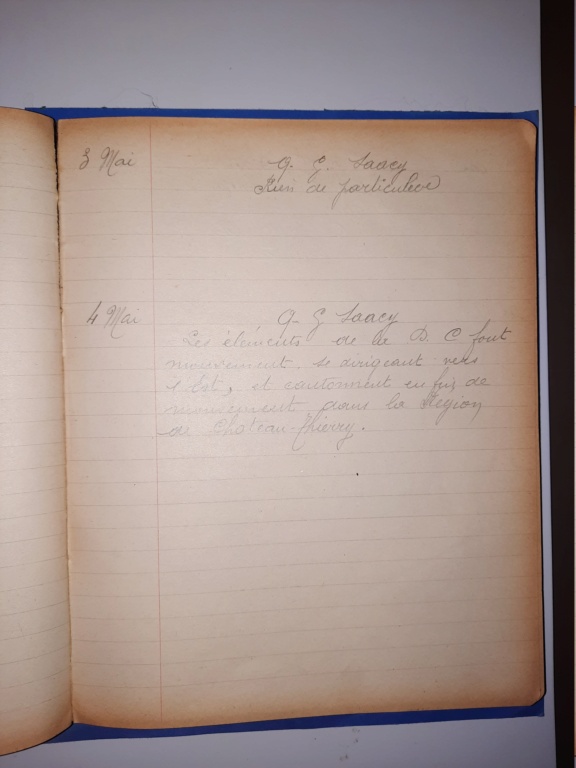 3 Mai
Q. G. Saacy
Rien de particulier
4 Mai
Q. G. Saacy
Les éléments de la D. C font
mouvement, se dirigeant vers
l'Est, et cantonnent en fin de
mouvement dans la Région
de Château-Thierry.